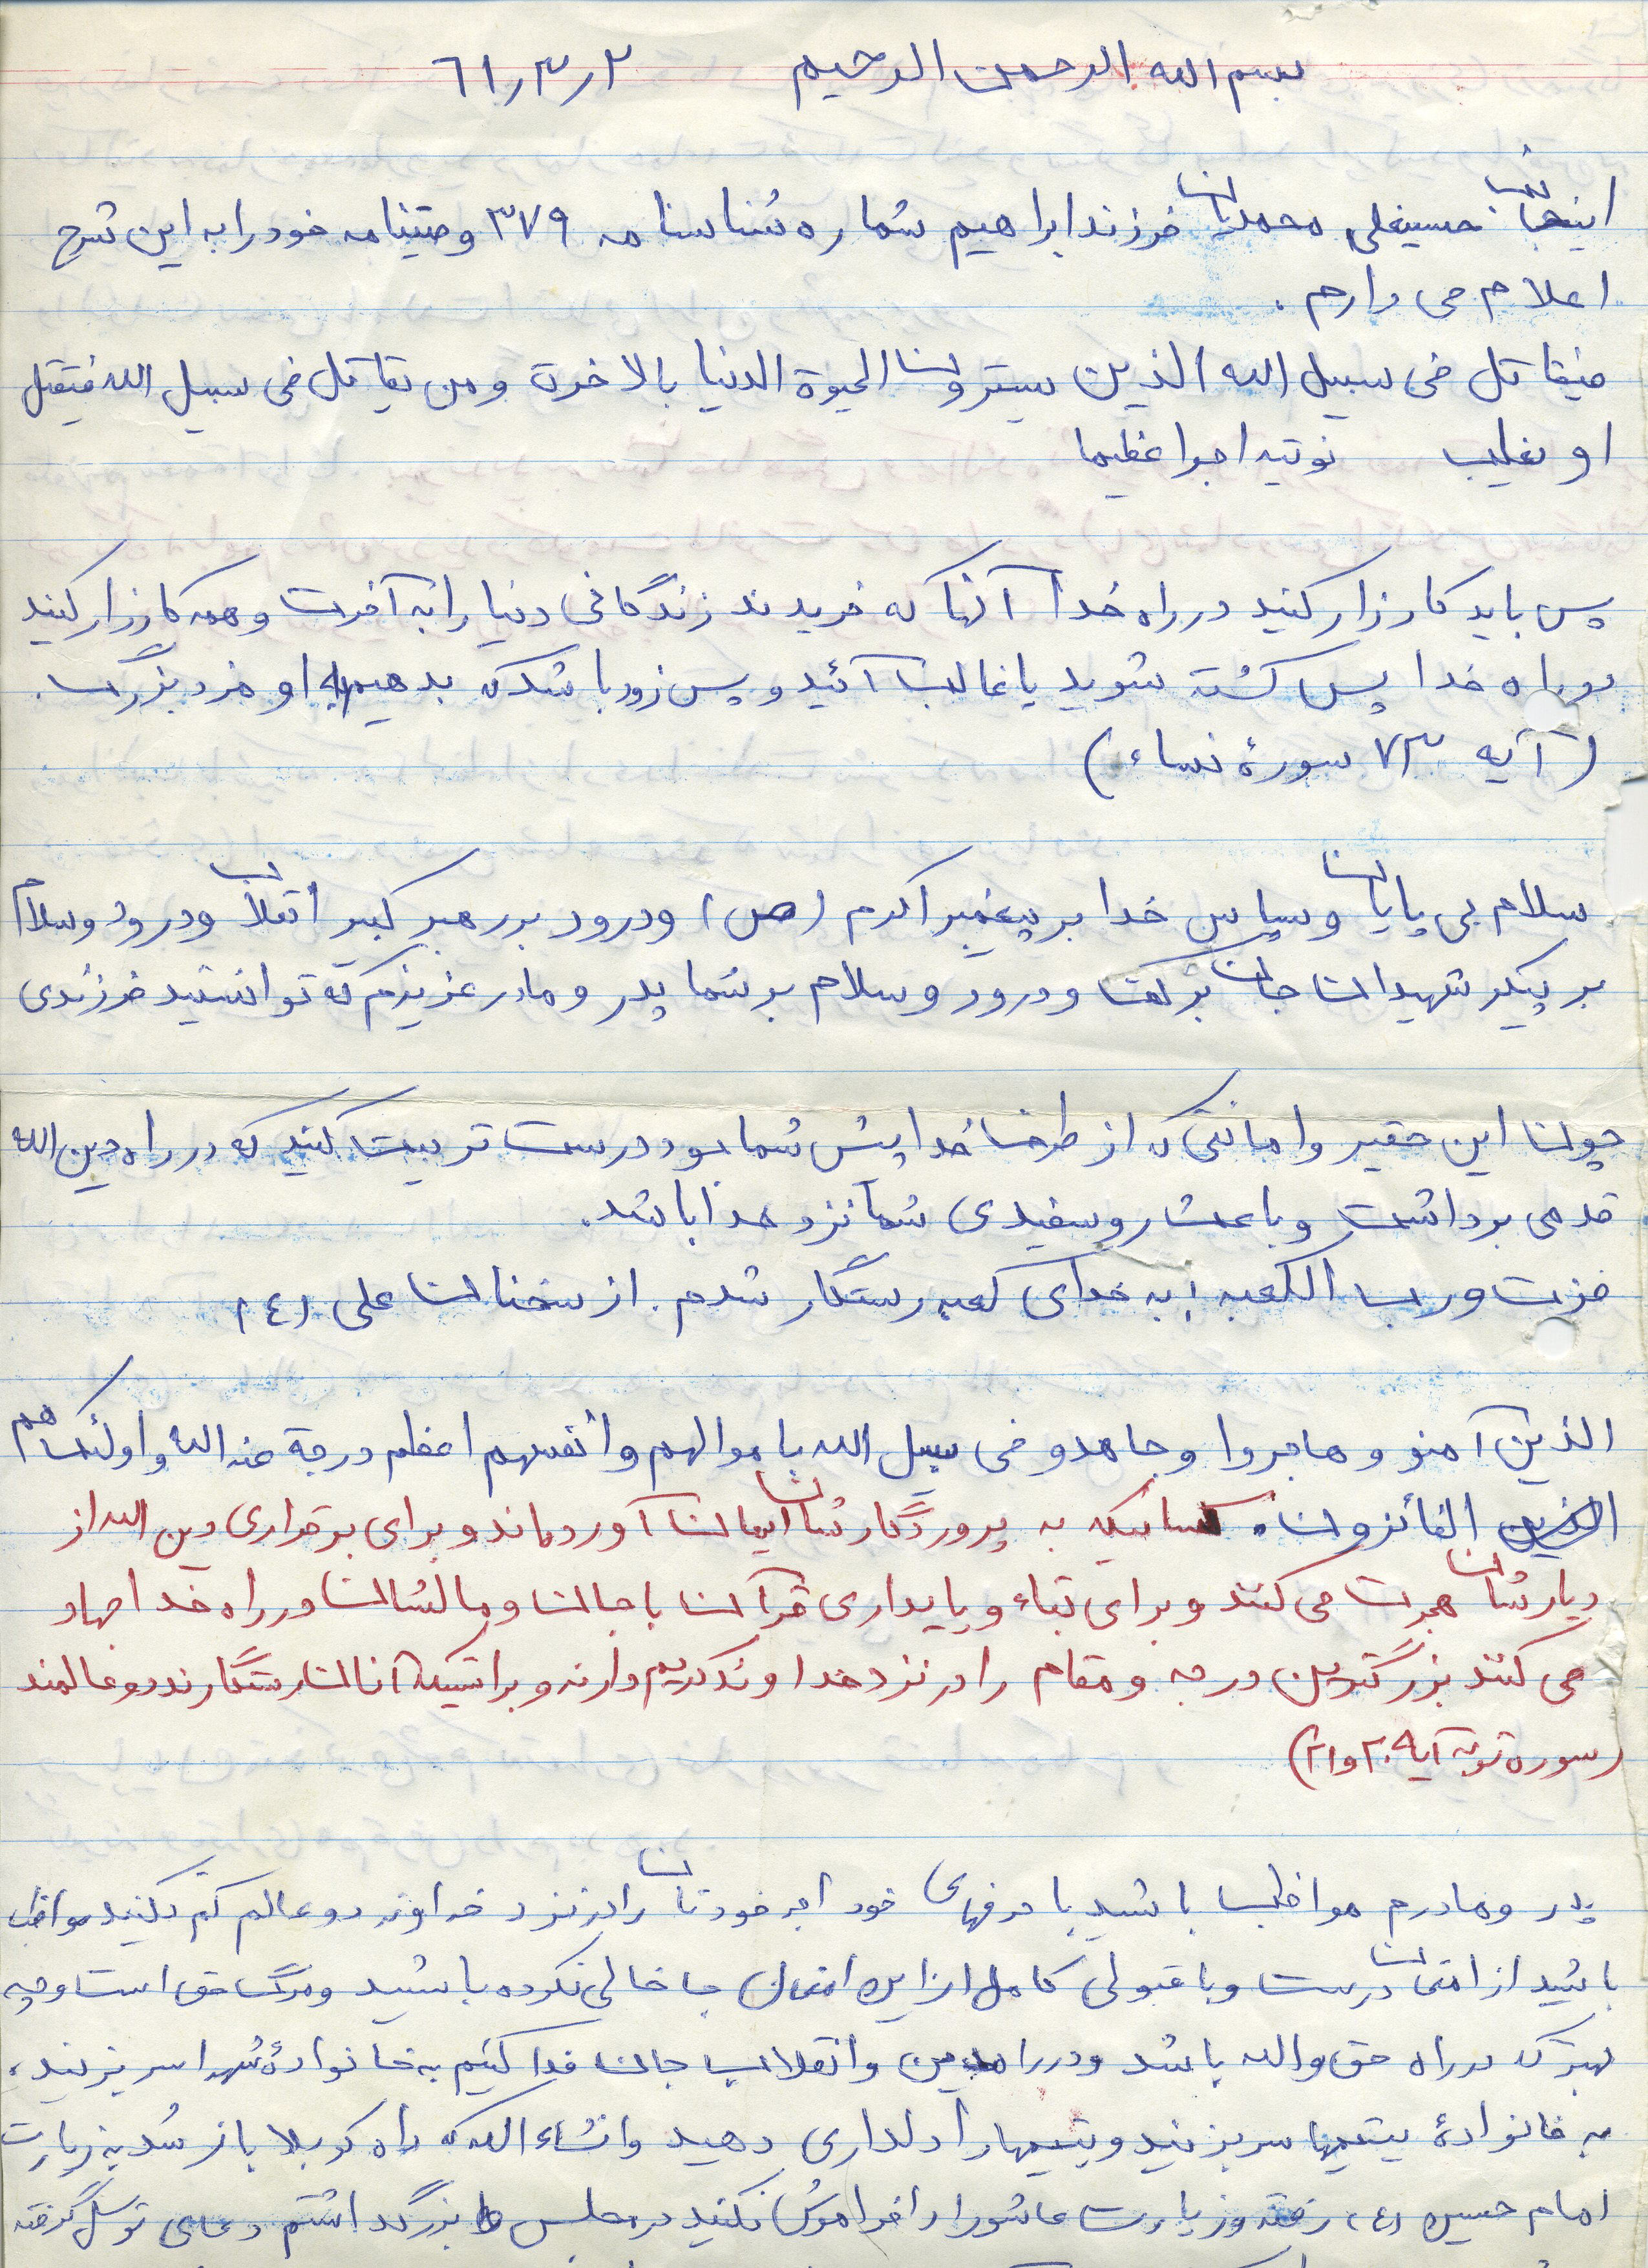 بسم الله الرحمن الرحیم ۶۱/۳/۲
اینجانب حسینعلی محمدیان فرزند ابراهیم شماره شناسنامه ۳۷۹ وصیتنامه خود را به این شرح
اعلام می دارم .
فیقاتل فی سبیل الله الذین سیترون الحیوة الدنیا بالاخرت و من یقاتل فی سبیل الله فیقتل
او یغلب نوتیه اجرا عظیما
پس باید کارزار کنید در راه خدا آنها که خریدند زندگانی دنیا را به آخرت و همه کارزار کنید
در راه خدا پس کشته شوید یا غالب آئید و پس زود باشد که بدهیم به او مزد بزرگ .
( آیه ۷۳ سورۀ نساء )
سلام بی پایان و سپاس خدا بر پیغمبر اکرم (ص) و درود بر رهبر کبیر انقلاب و درود و سلام
بر پیکر شهیدان جان بر کف و درود و سلام بر شما پدر و مادر عزیزم که توانستید فرزندی
چون این حقیر و امانتی که از طرف خدا پیش شما بود درست تربیت کنید که در راه دین الله
قدمی برداشت و باعث روسفیدی شما نزد خدا باشد .
فزت و رب الکعبه : به خدای کعبه رستگار شدم . از سخنان علی (ع)
الذین آمنو و هاجروا و جاهدو فی سبیل الله باموالهم و انفسهم اعظم درجة عند الله و اولئک هم
الفائزون . کسانیکه به پروردگارشان ایمان آورده‌اند و برای برقراری دین الله از
دیارشان هجرت می کنند و برای بقاء و پایداری قرآن با جان و مالشان در راه خدا جهاد
می کنند بزرگترین درجه و مقام را در نزد خداوند کریم دارند و براتیکه آنان رستگارند دو عالمند
(سوره توبه آیه ۲۰ و ۲۱)
پدر و مادرم مواظب باشید با حرفهای خود اجر خودتان را در نزد خداوند دو عالم کم نکنید مواظب
باشید از امتحان درست و با قبولی کامل از این امتحان جا خالی نکرده باشید و مرگ حق است و چه
بهتر که در راه حق و الله باشد و در راه دین و انقلاب جان فدا کنیم به خانوادۀ شهدا سر بزنید ،
به خانوادۀ یتیمها سر بزنید و یتیمها را دلداری دهید و انشاء الله که راه کربلا باز شد به زیارت
امام حسین (ع) رفته و زیارت عاشورا را فراموش نکنید در مجلس بزرگداشتم دعای توسل گرفته